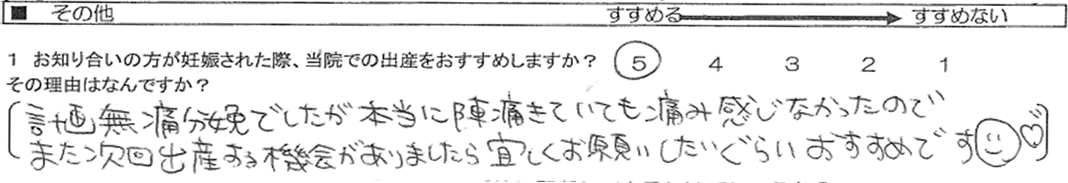 ■ その他 すすめる すすめない
1 お知り合いの方が妊娠された際、当院での出産をおすすめしますか？ 5 4 3 2 1
その理由はなんですか？
計画無痛分娩でしたが本当に陣痛きていても痛み感じなかったので
また次回出産する機会がありましたら宜しくお願いしたいぐらいおすすめです